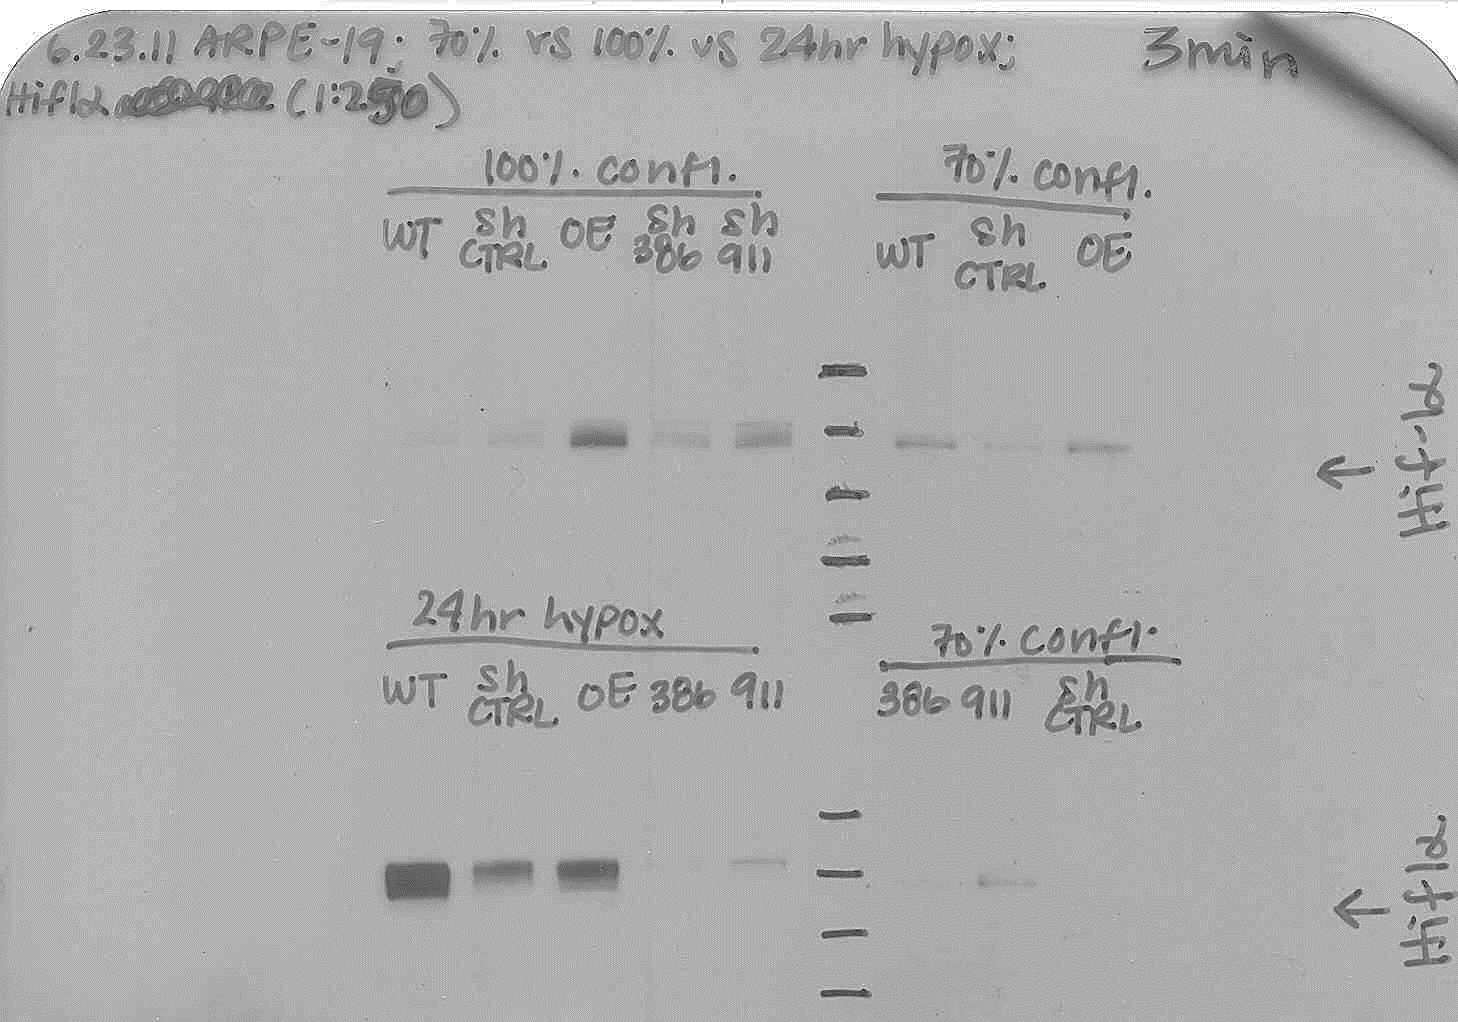 6.23.11 ARPE-19: 70% vs 100% vs 24hr hypox; 3min
Hif1α (1:250)
100% confl.
70% confl.
WT sh CTRL OE sh 386 sh 911
WT sh CTRL OE
Hif-1α
←
24hr hypox
70% confl.
WT sh CTRL OE 386 911
386 911 sh CTRL
Hif1α
←